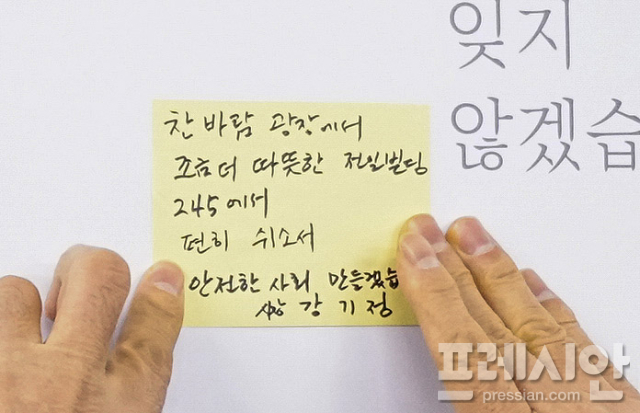 잊지
않겠습
찬바람 광장에서
조금더 따뜻한 전일빌딩
245에서
편히 쉬소서
안전한 사회 만들겠습
강기정
프레시안
pressian.com